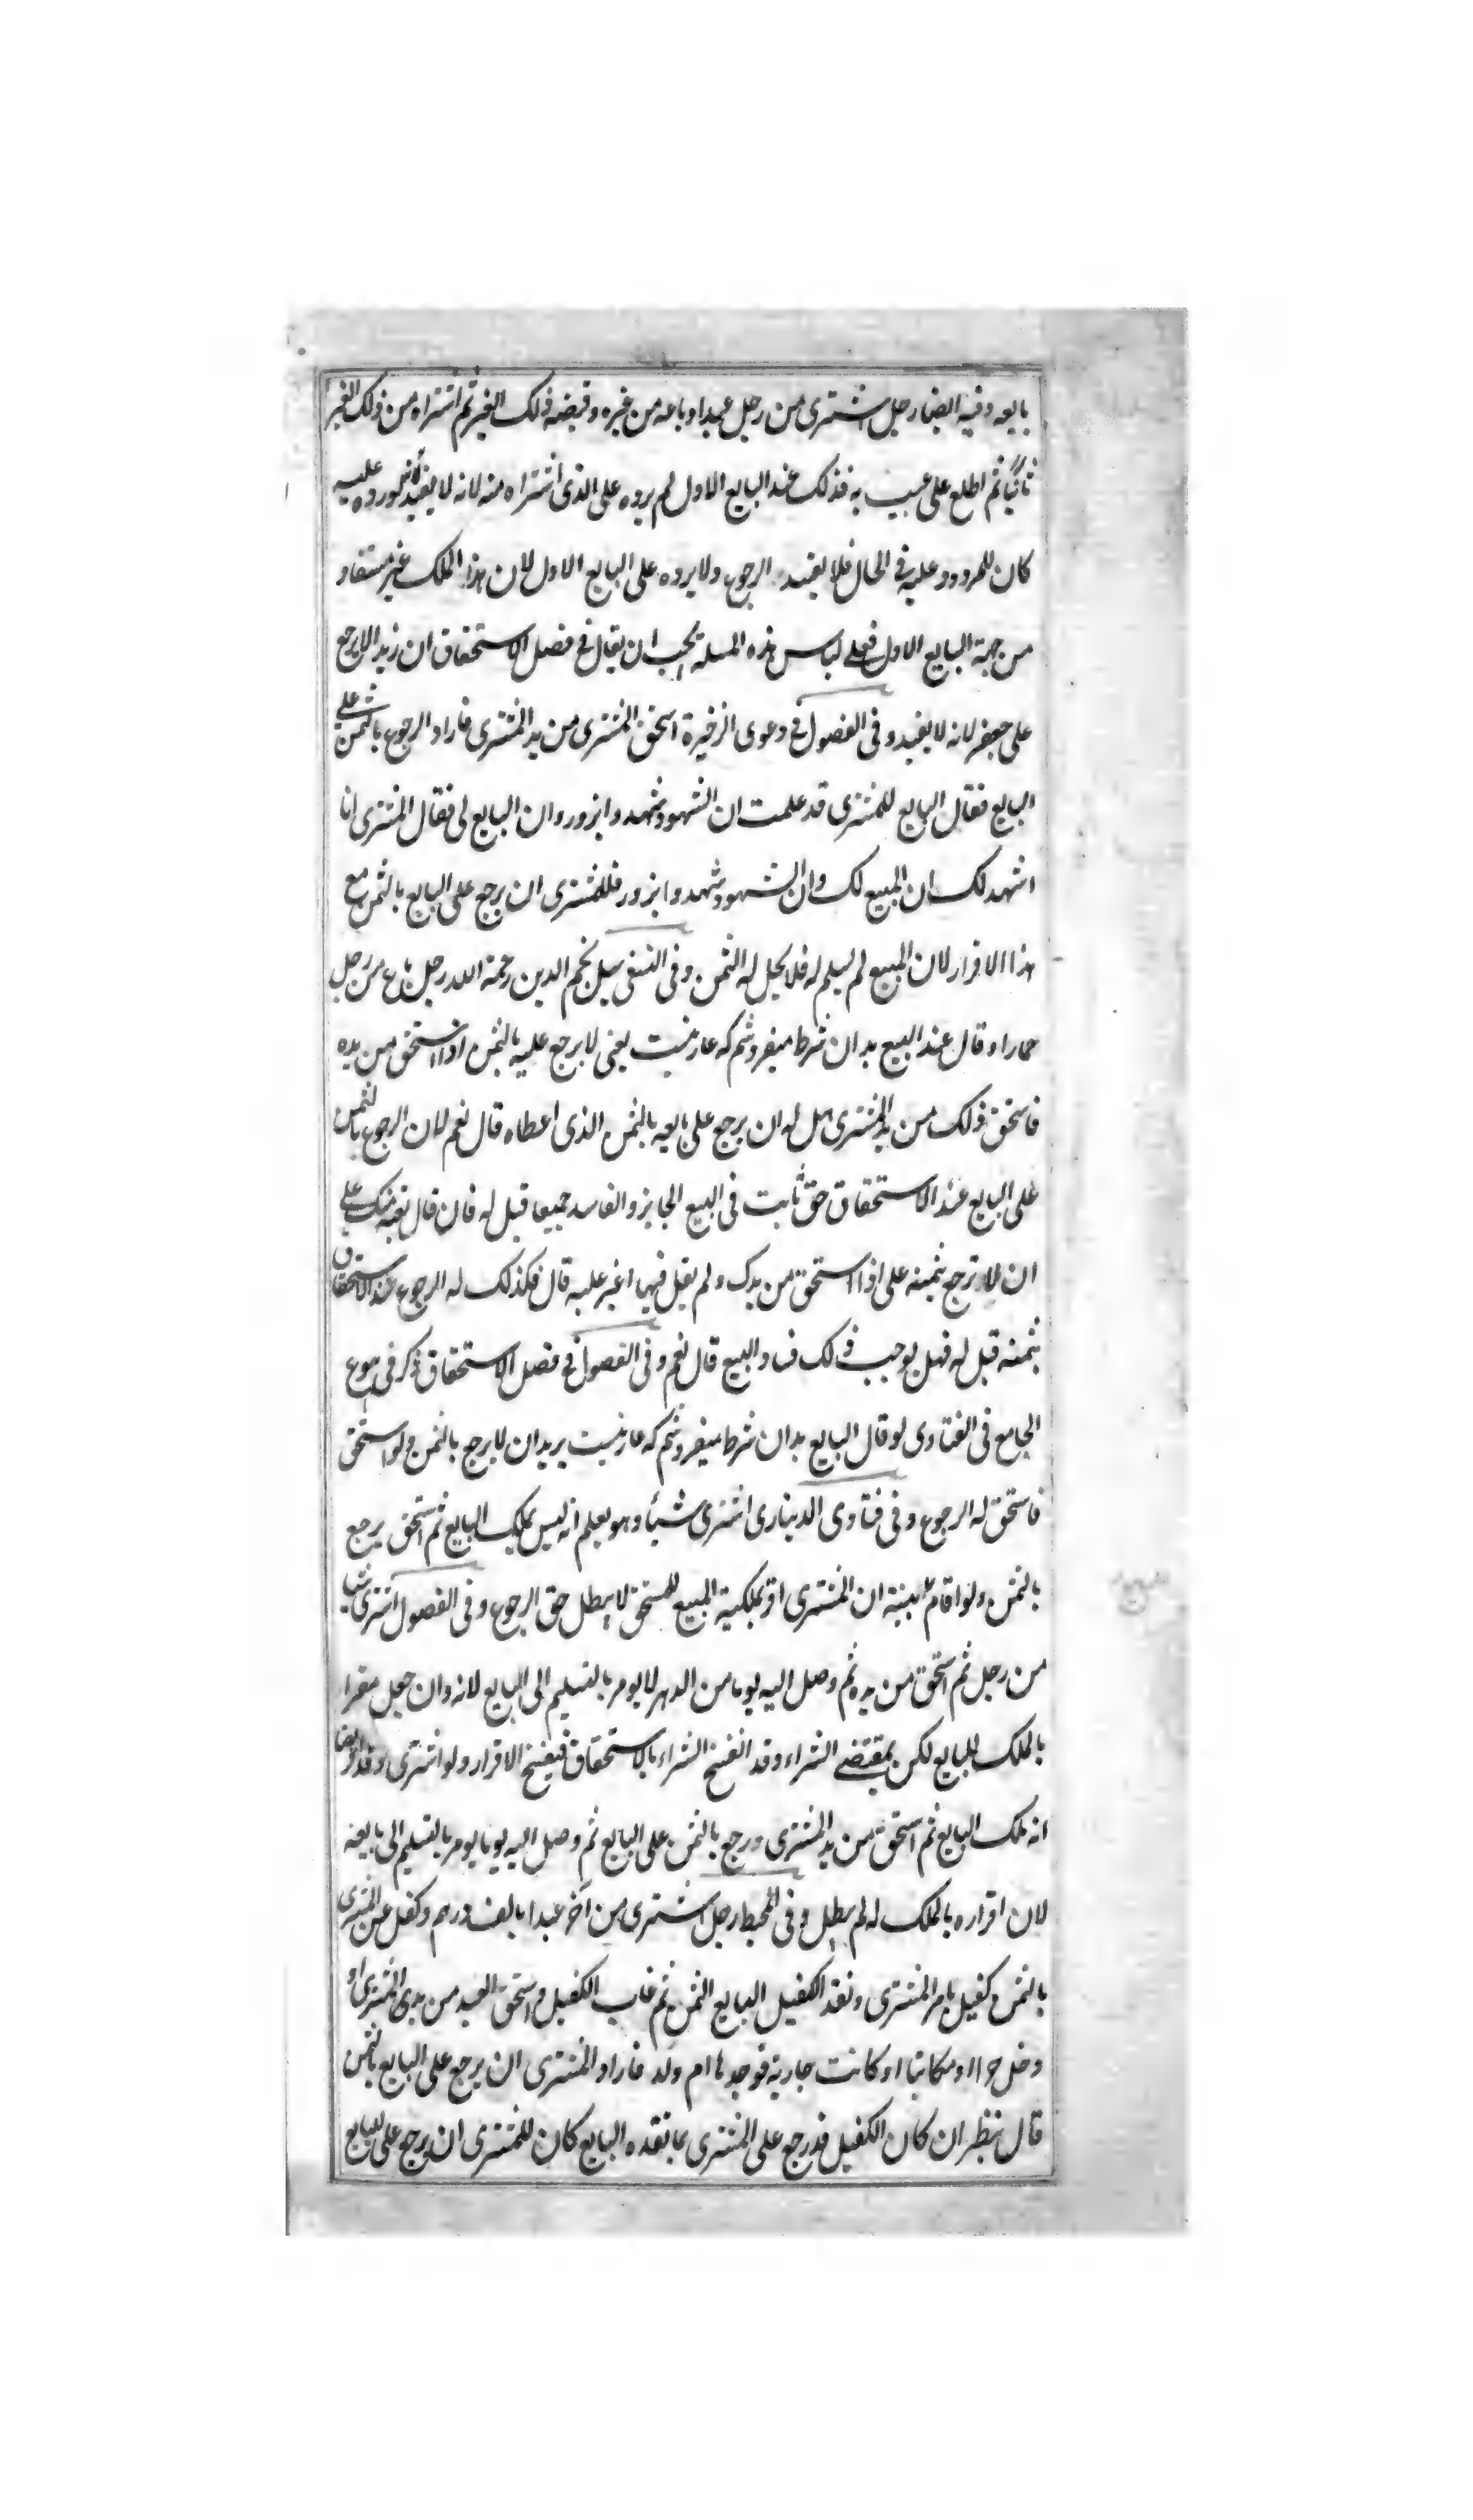 بايعه وفيه ايضا رجل اشترى من رجل عبدا وباعه من غيره وقبضه ذلك الغير ثم اشتراه من ذلك الغير
ثانيا ثم اطلع على عيب به فذلك عند البايع الاول لم يرده على الذى اشتراه منه لانه لا يفيد لانه لو رده عليه
كان للمردود عليه فى الحال فلا يفيد الرجوع ولا يرده على البايع الاول لان هذا الملك غير مستفاد
من جهة البايع الاول فعلى لباس هذه المسله يجب ان يقال فى فصل الاستحقاق ان زيدا لا يرجع
على جعفر لانه لا يفيد وفى الفصول فى دعوى الذخيرة استحق المشترى من يد المشترى فاراد الرجوع بالثمن على
البايع فقال البايع للمشترى قد علمت ان الشهود شهدوا بزور وان البايع لى فقال المشترى انا
اشهد لك ان المبيع لك وان الشهود شهدوا بزور فللمشترى ان يرجع على البايع بالثمن مع
هذا الاقرار لان المبيع لم يسلم له فلا يحل له الثمن وفى النسفى سيل نجم الدين رحمة الله رجل باع من رجل
حمارا وقال عند البيع بدان شرط ميفروشم كه عاريست يعنى لا يرجع عليه بالثمن اذا استحق من يده
فاستحق ذلك من يد المشترى هل له ان يرجع على بايعه بالثمن الذى اعطاه قال نعم لان الرجوع بالثمن
على البايع عند الاستحقاق حق ثابت فى البيع الجايز والفاسد جميعا قيل له فان قال بعته منك على
ان لا ترجع بثمنه على اذا استحق من يدك ولم يقل فيها اغير عليه قال فكذلك له الرجوع عند الاستحقاق
بثمنه قيل له فهل يوجب ذلك فساد البيع قال نعم وفى الفصول فى فصل الاستحقاق ذكر فى بيوع
الجامع فى الفتاوى لو قال البايع بدان شرط ميفروشم كه عاريست يريد ان لا يرجع بالثمن ولو استحق
فاستحق له الرجوع وفى فتاوى الدينارى اشترى شيأ وهو يعلم انه ليس بملك البايع ثم استحق يرجع
بالثمن ولو اقام البينة ان المشترى اقر بملكية المبيع للمستحق لا يبطل حق الرجوع وفى الفصول اشترى شيأ
من رجل ثم استحق من يده ثم وصل اليه يوما من الدهر لا يومر بالتسليم الى البايع لانه وان جعل مقرا
بالملك للبايع لكن بمقتضى الشراء وقد انفسخ الشراء بالاستحقاق فينفسخ الاقرار ولو اشترى وقد اقر نصا
انه ملك البايع ثم استحق من يد المشترى ورجع بالثمن على البايع ثم وصل اليه يوما يومر بالتسليم الى بايعه
لان اقراره بالملك له لم يبطل وفى المحيط رجل اشترى من آخر عبدا بالف درهم وكفل عن المشترى
بالثمن كفيل بامر المشترى ونقد الكفيل البايع الثمن ثم غاب الكفيل واستحق العبد من يدى المشترى او
وجد حرا او مكاتبا او كانت جارية فوجدها ام ولد فاراد المشترى ان يرجع على البايع بالثمن
قال ينظر ان كان الكفيل قد رجع على المشترى بما نقده البايع كان للمشترى ان يرجع على البايع